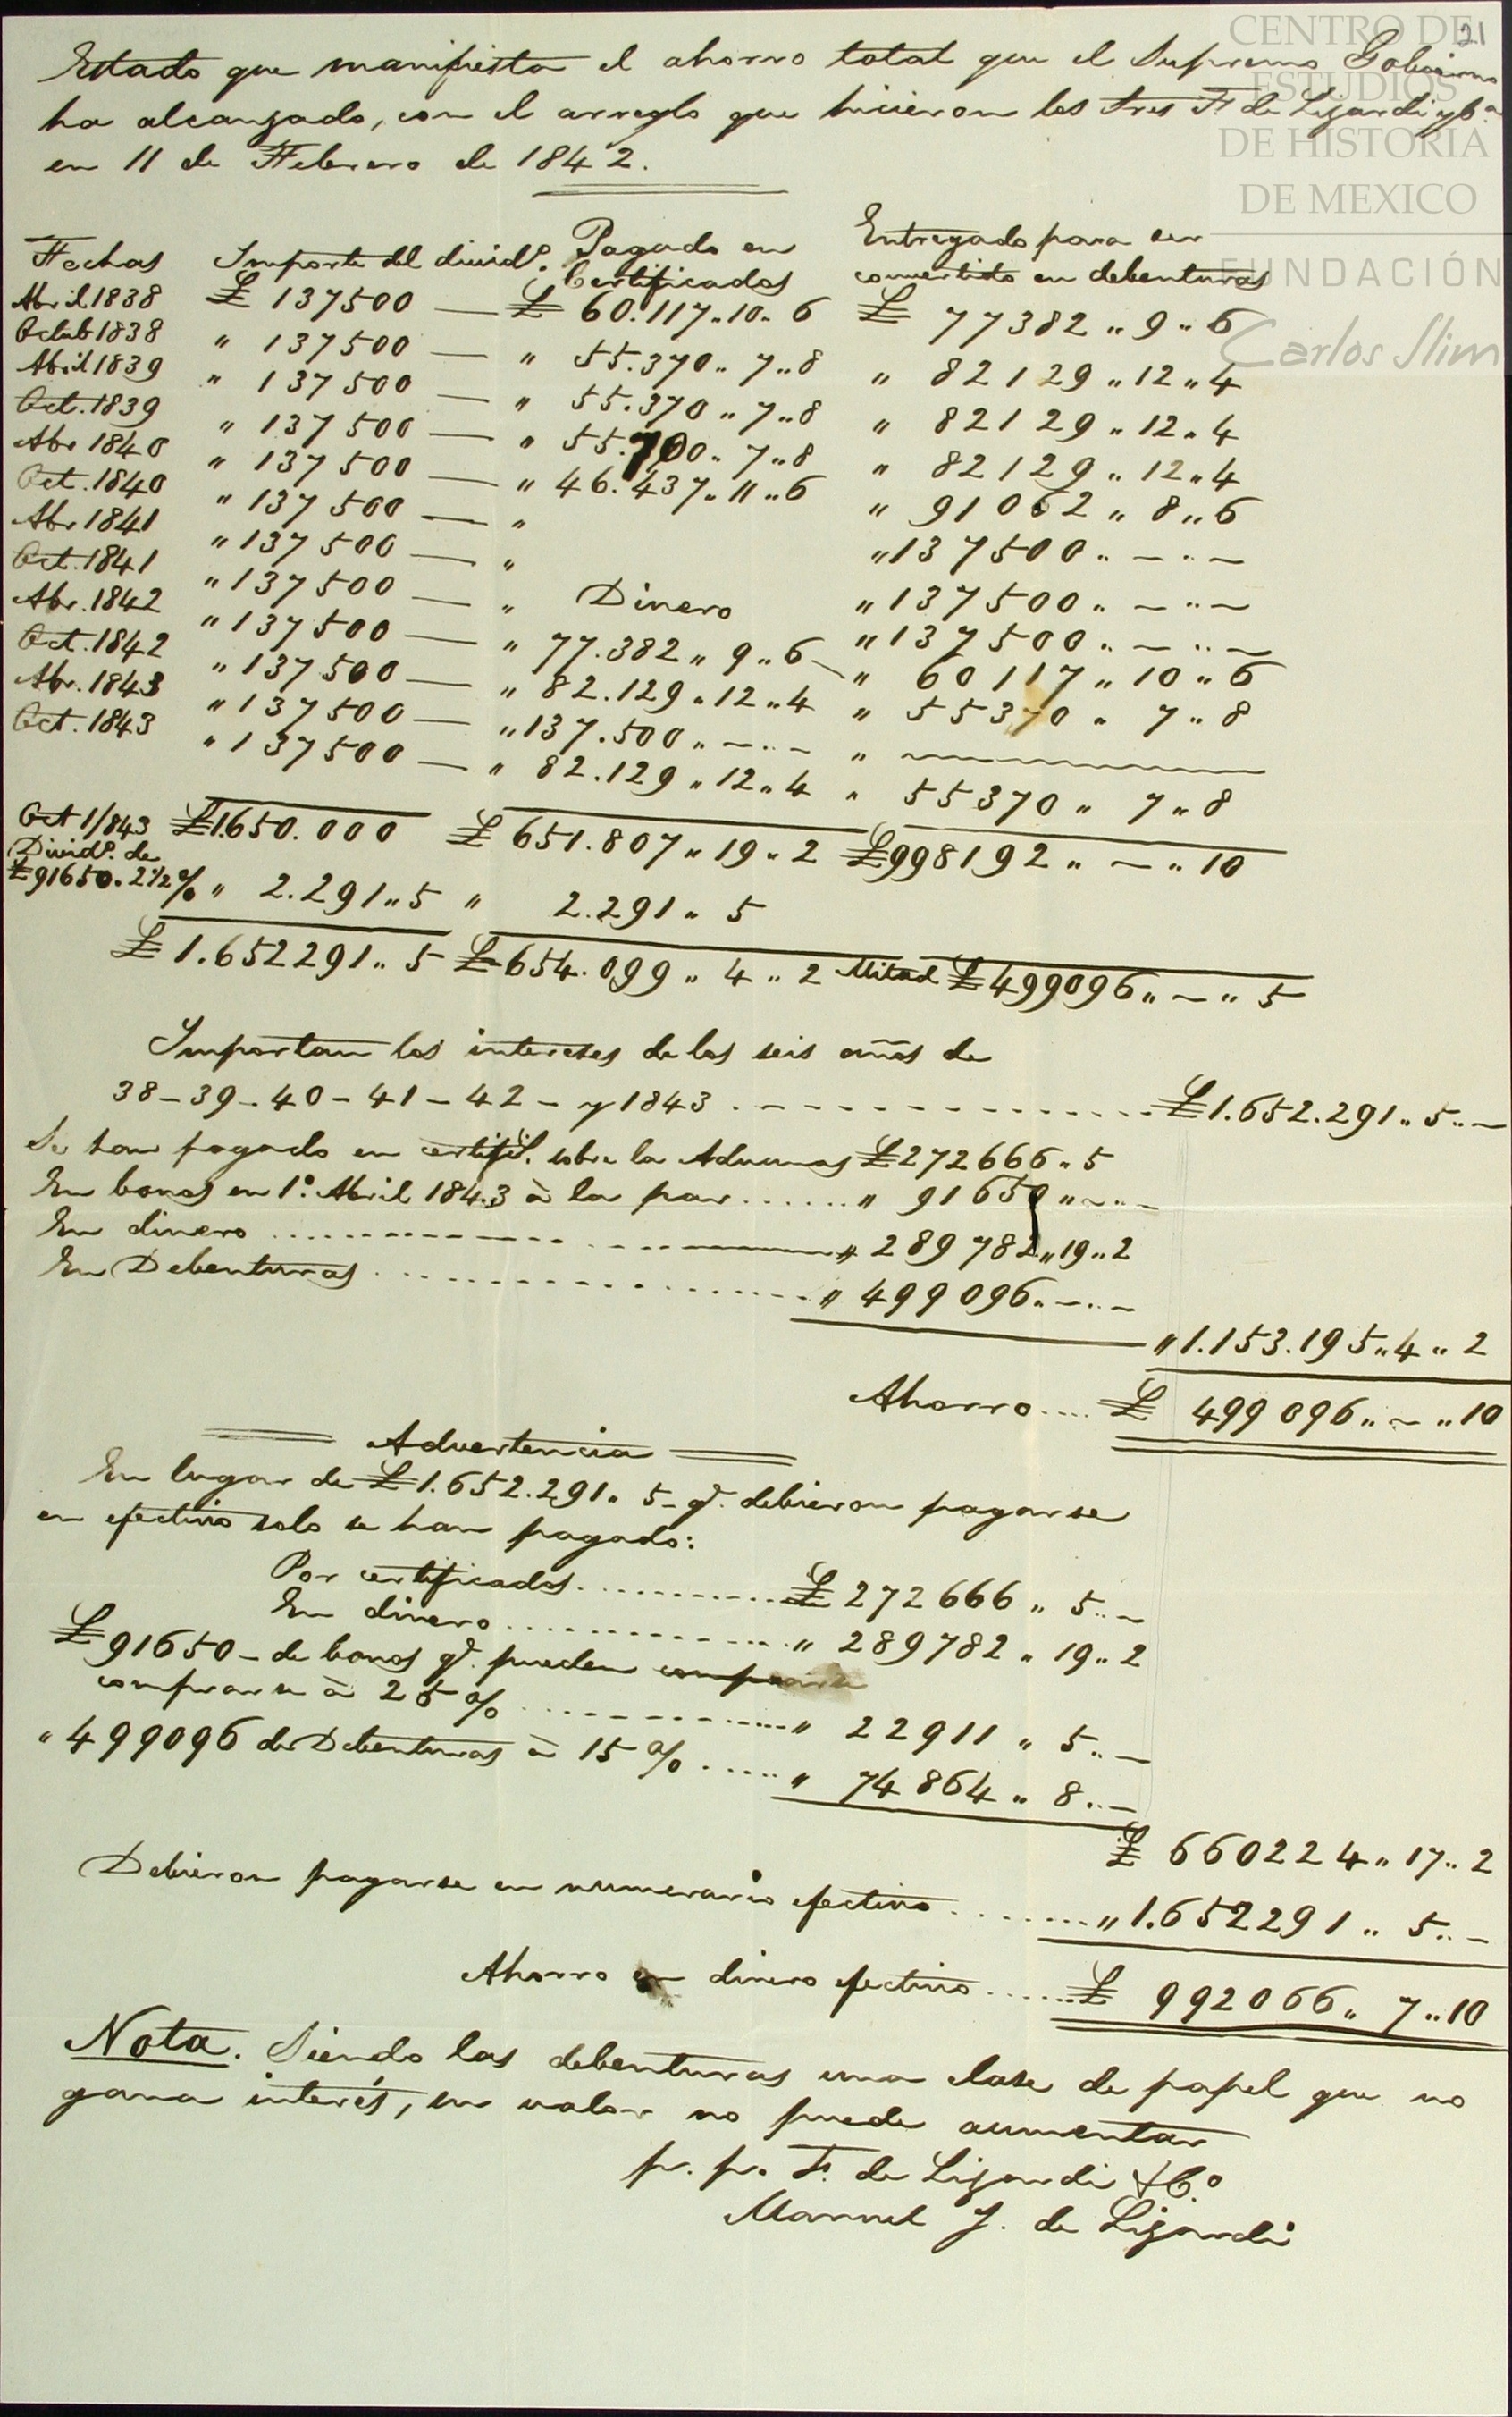 21
Estado que manifiesta el ahorro total que el Supremo Gobierno
ha alcanzado, con el arreglo que hicieron los Sres F de Lizardi y Cª
en 11 de Febrero de 1842.
Fechas Importe del dividº. Pagado en Certificados Entregado para ser convertido en debenturas
Abril 1838 £ 137500 — £ 60.117 " 10 " 6 £ 77382 " 9 " 6
Octub 1838 " 137500 — " 55.370 " 7 " 8 " 82129 " 12 " 4
Abril 1839 " 137500 — " 55.370 " 7 " 8 " 82129 " 12 " 4
Oct. 1839 " 137500 — " 55.700 " 7 " 8 " 82129 " 12 " 4
Abr 1840 " 137500 — " 46.437 " 11 " 6 " 91062 " 8 " 6
Oct. 1840 " 137500 — " " 137500 " — " —
Abr 1841 " 137500 — " " 137500 " — " —
Oct. 1841 " 137500 — " Dinero " 137500 " — " —
Abr. 1842 " 137500 — " 77.382 " 9 " 6 " 60117 " 10 " 6
Oct. 1842 " 137500 — " 82.129 " 12 " 4 " 55370 " 7 " 8
Abr. 1843 " 137500 — " 137.500 " — " — " —
Oct. 1843 " 137500 — " 82.129 " 12 " 4 " 55370 " 7 " 8
£1.650.000 £ 651.807 " 19 " 2 £998192 " — " 10
Oct 1/843
Dividº. de
£91650. 2½% " 2.291 " 5 " 2.291 " 5
£ 1.652291 " 5 £ 654.099 " 4 " 2 Mitad £499096 " — " 5
Importan los intereses de los seis años de
38 - 39 - 40 - 41 - 42 - y 1843 . - - - - - £1.652.291 " 5 " —
Se han pagado en certifil. sobre la Aduanas £272666 " 5
En bonos en 1º. Abril 1843 à la par ...... " 91650 " — " —
En dinero ........ " 289782 " 19 " 2
En Debenturas ........ " 499096 " — " —
" 1.153.195 " 4 " 2
Ahorro .... £ 499096 " — " 10
Advertencia
En lugar de £1.652.291 " 5 - q. debieron pagarse
en efectivo solo se han pagado:
Por certificados ........ £ 272666 " 5 " —
En dinero ........ " 289782 " 19 " 2
£91650 - de bonos q. pueden comprarse
comprarse à 25 % ........ " 22911 " 5 " —
" 499096 de Debenturas à 15 % ..... " 74864 " 8 " —
£ 660224 " 17 " 2
Debieron pagarse en numerario efectivo ........ " 1.652291 " 5 " —
Ahorro en dinero efectivo ...... £ 992066 " 7 " 10
Nota. Siendo las debenturas una clase de papel que no
gana interés, su valor no puede aumentar
p. p. F. de Lizardi & Cº.
Manuel J. de Lizardi
CENTRO DE
ESTUDIOS
DE HISTORIA
DE MEXICO
FUNDACIÓN
Carlos Slim